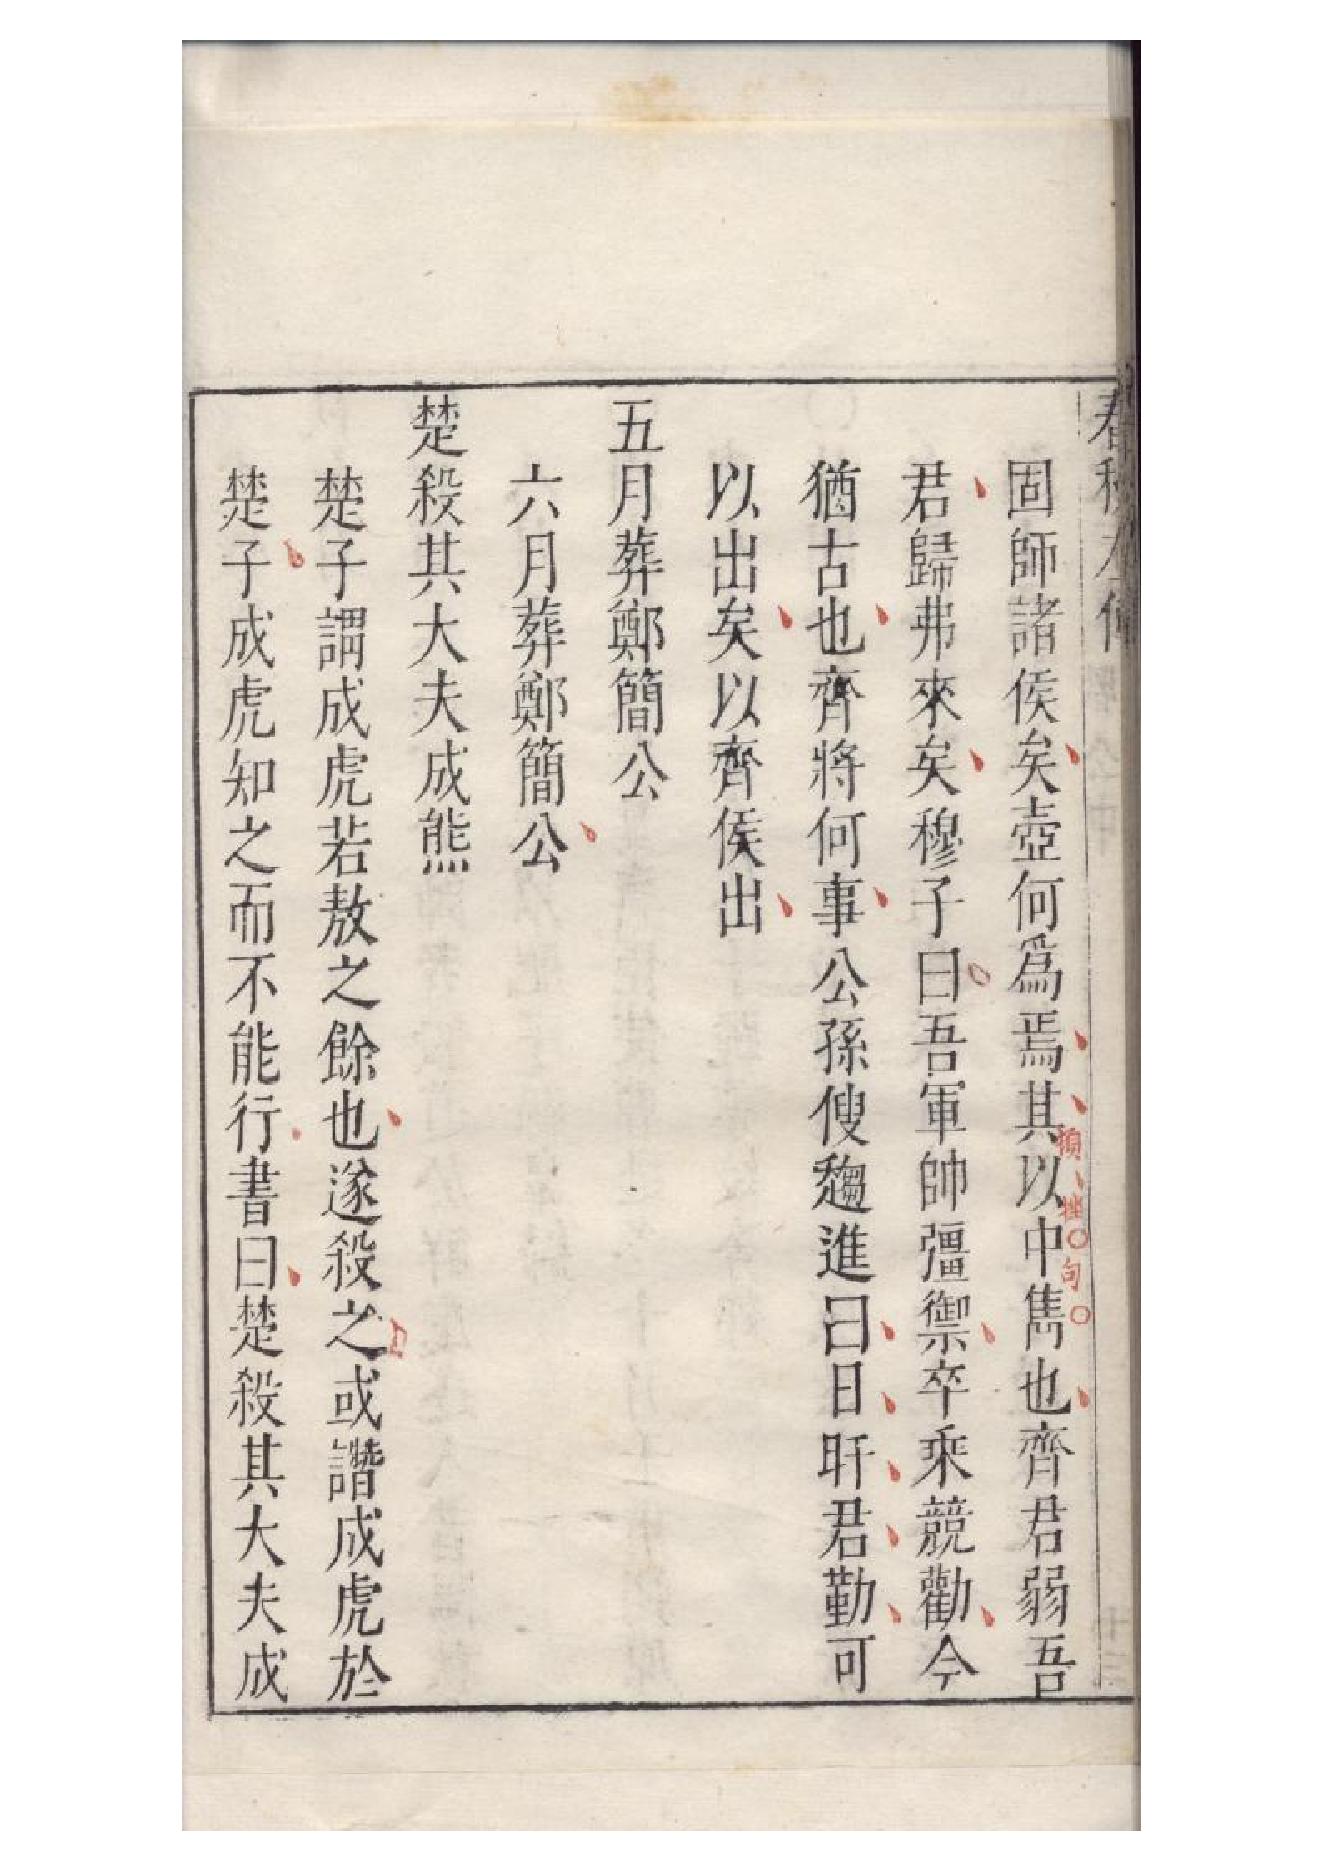 春秋左傳
固師諸侯矣壺何爲焉其以中雋也齊君弱吾
頓挫
句
君歸弗來矣穆子曰吾軍帥彊禦卒乘競勸今
猶古也齊將何事公孫傁趨進曰日旰君勤可
以出矣以齊侯出
五月葬鄭簡公
六月葬鄭簡公
楚殺其大夫成熊
楚子謂成虎若敖之餘也遂殺之或譖成虎於
楚子成虎知之而不能行書曰楚殺其大夫成